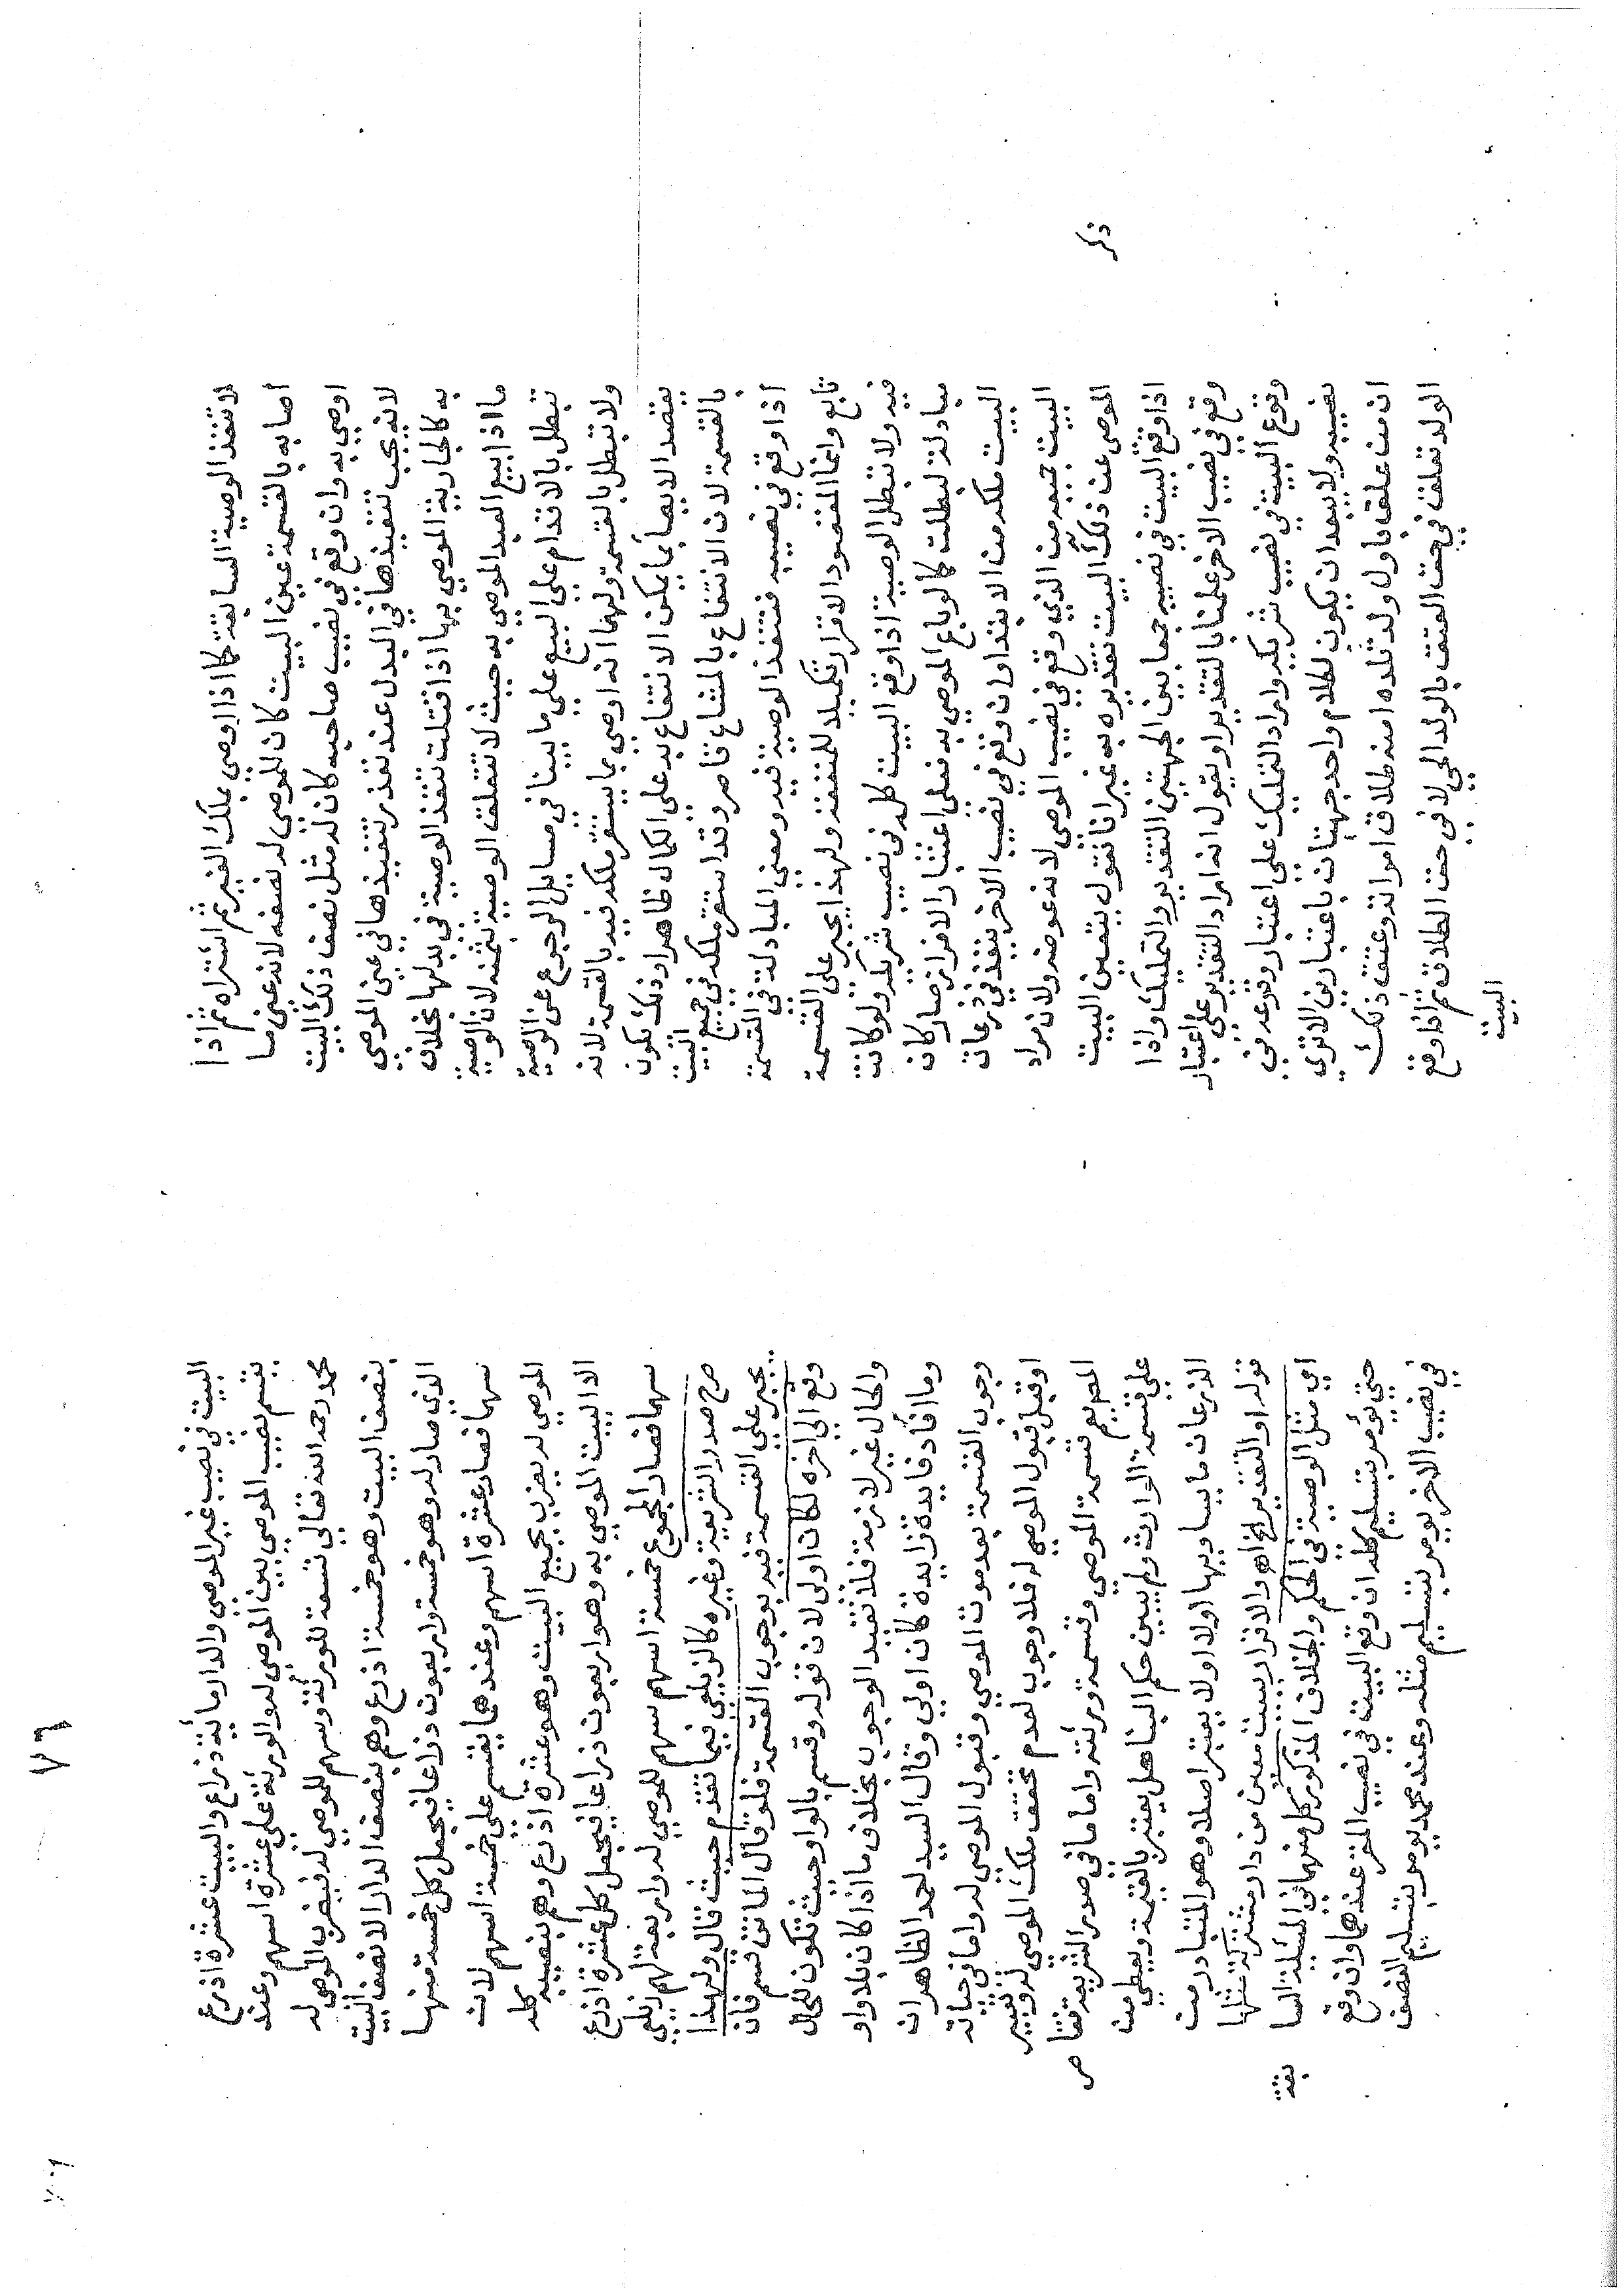 لا تنفذ الوصية السابقة كما اذا اوصي بملك الغير ثم اشتراه ثم اذا
اصابه بالقسمة عين البيت كان للموصي له نصفه لانه عين ما
اوصي به وان وقع في نصيب صاحبه كان له مثل نصف ذلك البيت
لانه يجب تنفيذها في البدل عند تعذر تنفيذها في عين الموصي
به كالجارية الموصي بها اذا قتلت تنفذ الوصية في بدلها بخلاف
ما اذا بيع العبد الموصي به حيث لا تتعلق الوصية بثمنه لان الوصية
تبطل بالاقدام علي البيع علي ما بينا في مسايل الرجوع عن الوصية
ولا تبطل بالقسمة ولهما انه اوصي بما يستقر ملكه فيه بالقسمة لانه
يقصد الايصا بما يمكن الانتفاع به علي الكمال ظاهرا وذلك يكون
بالقسمة لان الانتفاع بالمشاع قاصر وقد استقر ملكه في جميع البيت
اذا وقع في نصيبه فتنفذ الوصية فيه ومعني المبادلة في القسمة
تابع وانما المقصود الافراز تكميلا للمنفعة ولهذا يجبر علي القسمة
فيه ولا تبطل الوصية اذا وقع البيت كله في نصيب شريكه ولو كانت
مبادلة لبطلت كما لو باع الموصي به فعلي اعتبار الافراز صار كان
البيت ملكه من الابتداء وان وقع في نصيب الاخر ينفذ في ذرعان
البيت جميعه من الذي وقع في نصيب الموصي لانه عوضه ولان مراد
الموصي عن ذكر ذلك البيت تقديره به غير انا نقول يتعين البيت
اذا وقع البيت في نصيبه جمعا بين الجهتين التقدير والتمليك واذا
وقع في نصيب الاخر علمنا بالتقدير او يقول انه اراد التقدير علي اعتبار
وقوع البيت في نصيب شريكه واراد التمليك علي اعتبار وقوعه في
نصيبه ولا يبعد ان يكون لكلام واحد جهتان باعتبارين الا تري
ان من علق باول ولد تلده امته طلاق امراته وعتق ذلك
الولد تعلق في حق العتق بالولد الحي لا في حق الطلاق ثم اذا وقع
البيت
٧٦
البيت في نصيب غير الموصي والدار مائة ذراع والبيت عشرة اذرع
يقسم نصيب الموصي بين الموصي له والورثة علي عشرة اسهم وعند
محمد رحمه الله تعالي تسعة للورثة وسهم للموصي له فيضرب الموصي له
بنصف البيت وهو خمسة اذرع وهم بنصف الدار الا نصف البيت
الذي صار له وهو خمسة واربعون ذراعا فيجعل كل خمسة منها
سهما فصار عشرة اسهم وعندهما يقسم علي خمسة اسهم لان
الموصي له يضرب بجميع البيت وهو عشرة اذرع وهم بنصيبه كله
الا البيت الموصي به وهو اربعون ذراعا فيجعل كل عشرة اذرع
سهما فصار المجموع خمسة اسهم سهم للموصي له واربعة لهم زيلعي
صرح صدر الشريعة وغيره كالزيلعي فيما تقدم حيث قال ولهذا
يجبر علي القسمة فيه بوجوب القسمة فلو قال الماتن قسم فان
وقع الي اخره لكان اولي لان قوله وقسم بالواو حيث تكون للحال
والحال غير لازمة فلا تفيد الوجوب بخلاف ما اذا كان بلا واو
وما افاد فايدة زايدة كان اولي وقال السيد احمد الظاهر ان
وجوب القسمة بعد موت الموصي وقبول الموصي له واما في حياته
او قبل قبول الموصي له فلا وجوب لعدم تحقق ملك الموصي له وتعبير
المص يعم قسمة الموصي وقسمة ورثته واما ما في صدر الشريعة فقاصر
علي قسمة الوارث ولم يبين حكم البنا هل يعتبر بالقيمة ويعطي من
الذرعان ما يساويها او لا او لا يعتبر اصلا وهو المتبادر من
قوله او التقدير الخ اهـ والاقرار ببيت معين من دار مشتركة مثلها
اي مثل الوصية في الحكم والخلاف المذكور كل منهما في المسئلة السابقة
حتي يؤمر بتسليم كله ان وقع البيت في نصيب المقر عندهما وان وقع
في نصيب الاخر يومر بتسليم مثله وعند محمد يومر بتسليم النصف